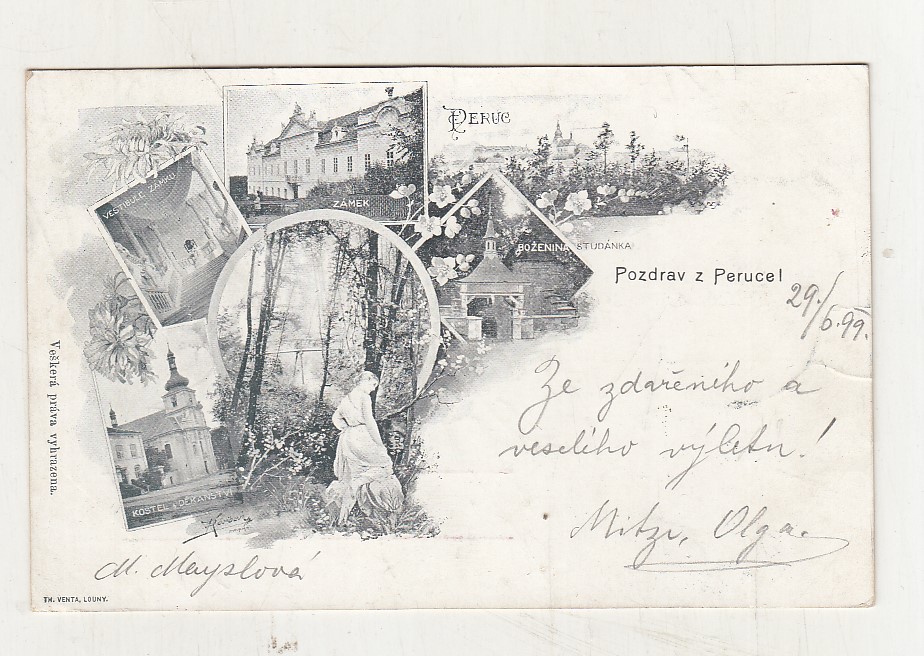 PERUC
ZÁMEK
VESTIBULE ZÁMKU
BOŽENINA STUDÁNKA
Pozdrav z Peruce!
29./6.99.
Ze zdařeního a
veselího výletu!
Mitzi, Olga.
KOSTEL A DĚKANSTVÍ
Veškerá práva vyhrazena.
M. Mayslová
TH. VENTA, LOUNY.